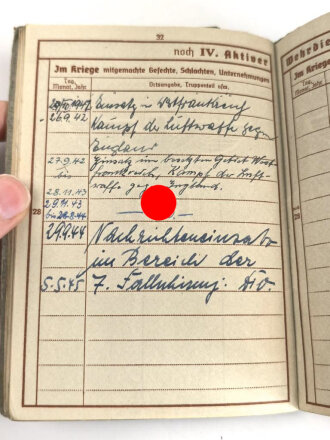 32
noch IV. Aktiver Wehrdie
Im Kriege mitgemachte Gefechte, Schlachten, Unternehmungen
Im Krie
Tag, Monat, Jahr
Ortsangabe, Truppenteil usw.
Tag, Monat, Jahr
Einsatz in Westfrankreich
26.9.42 Kampf der Luftwaffe gegen
England
27.9.42 Einsatz im besetzten Gebiet West
bis frankreich, Kampf der Luft-
28.11.43 waffe gegen England.
29.11.43
28
28
29.9.44 Nachrichteneinsatz
im Bereich der
5.5.45 7. Fallschirmj. Div.